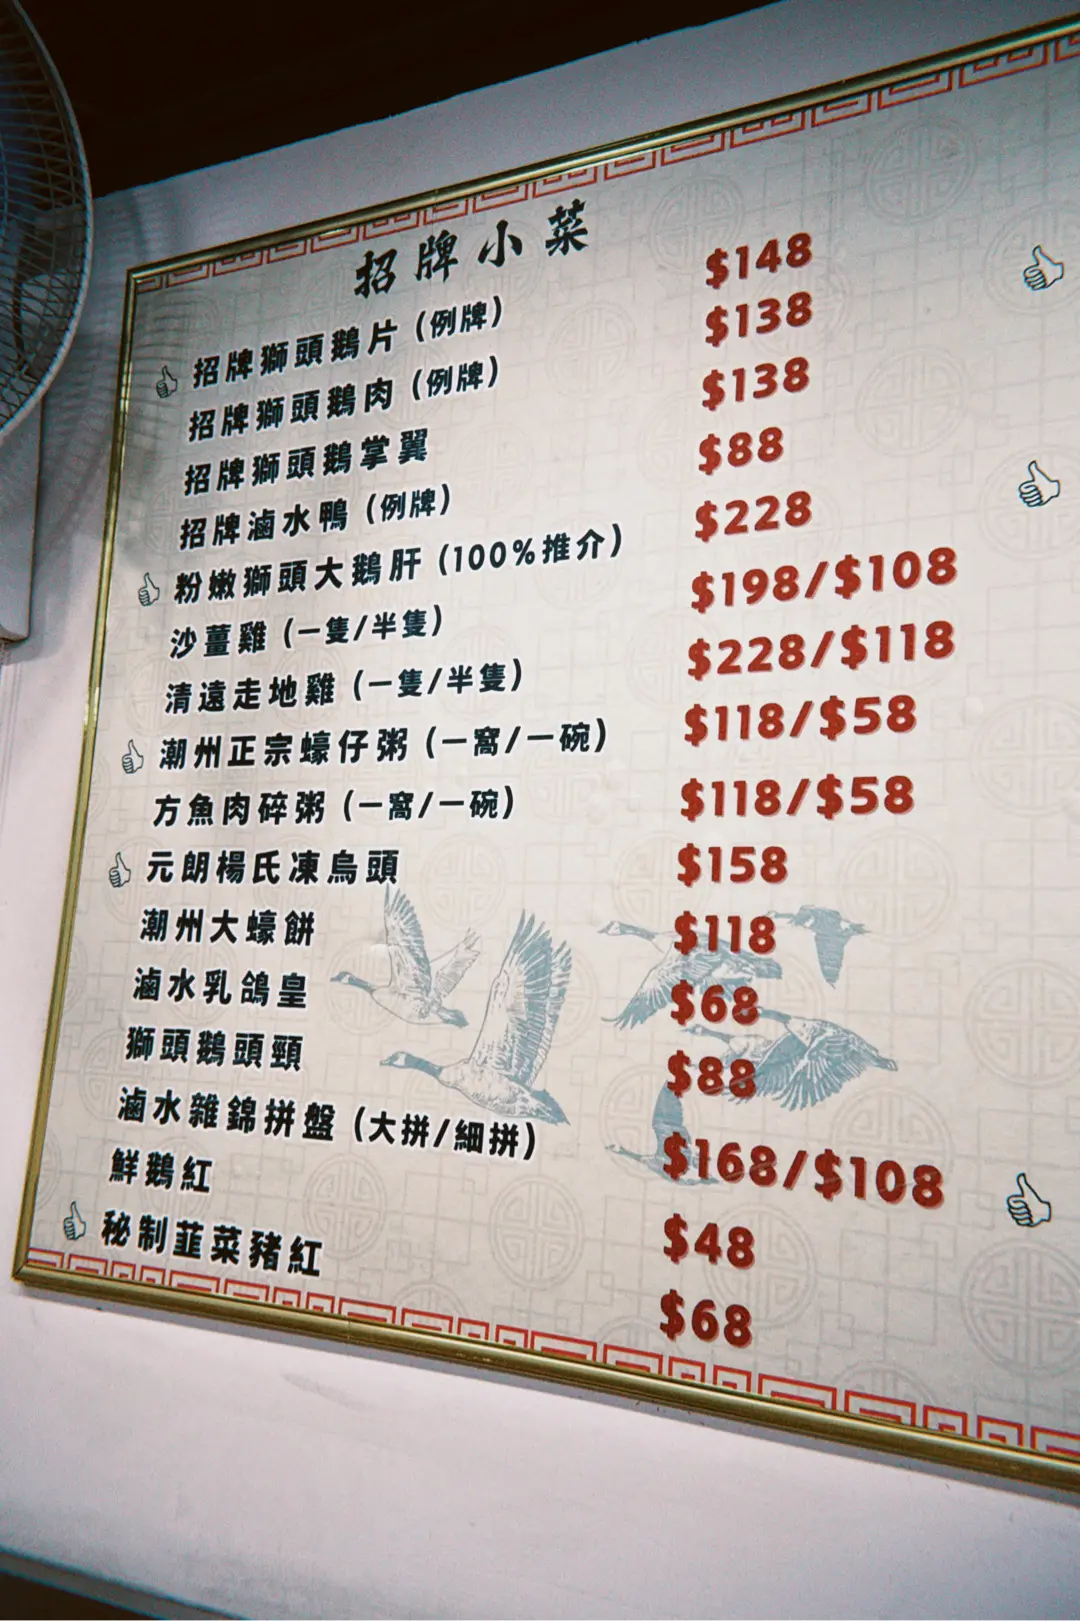 招牌小菜
招牌獅頭鵝片 (例牌) $148
招牌獅頭鵝肉 (例牌) $138
招牌獅頭鵝掌翼 $138
招牌滷水鴨 (例牌) $88
粉嫩獅頭大鵝肝 (100%推介) $228
沙薑雞 (一隻/半隻) $198/$108
清遠走地雞 (一隻/半隻) $228/$118
潮州正宗蠔仔粥 (一窩/一碗) $118/$58
方魚肉碎粥 (一窩/一碗) $118/$58
元朗楊氏凍烏頭 $158
潮州大蠔餅 $118
滷水乳鴿皇 $68
獅頭鵝頭頸 $88
滷水雜錦拼盤 (大拼/細拼) $168/$108
鮮鵝紅 $48
秘制韮菜豬紅 $68